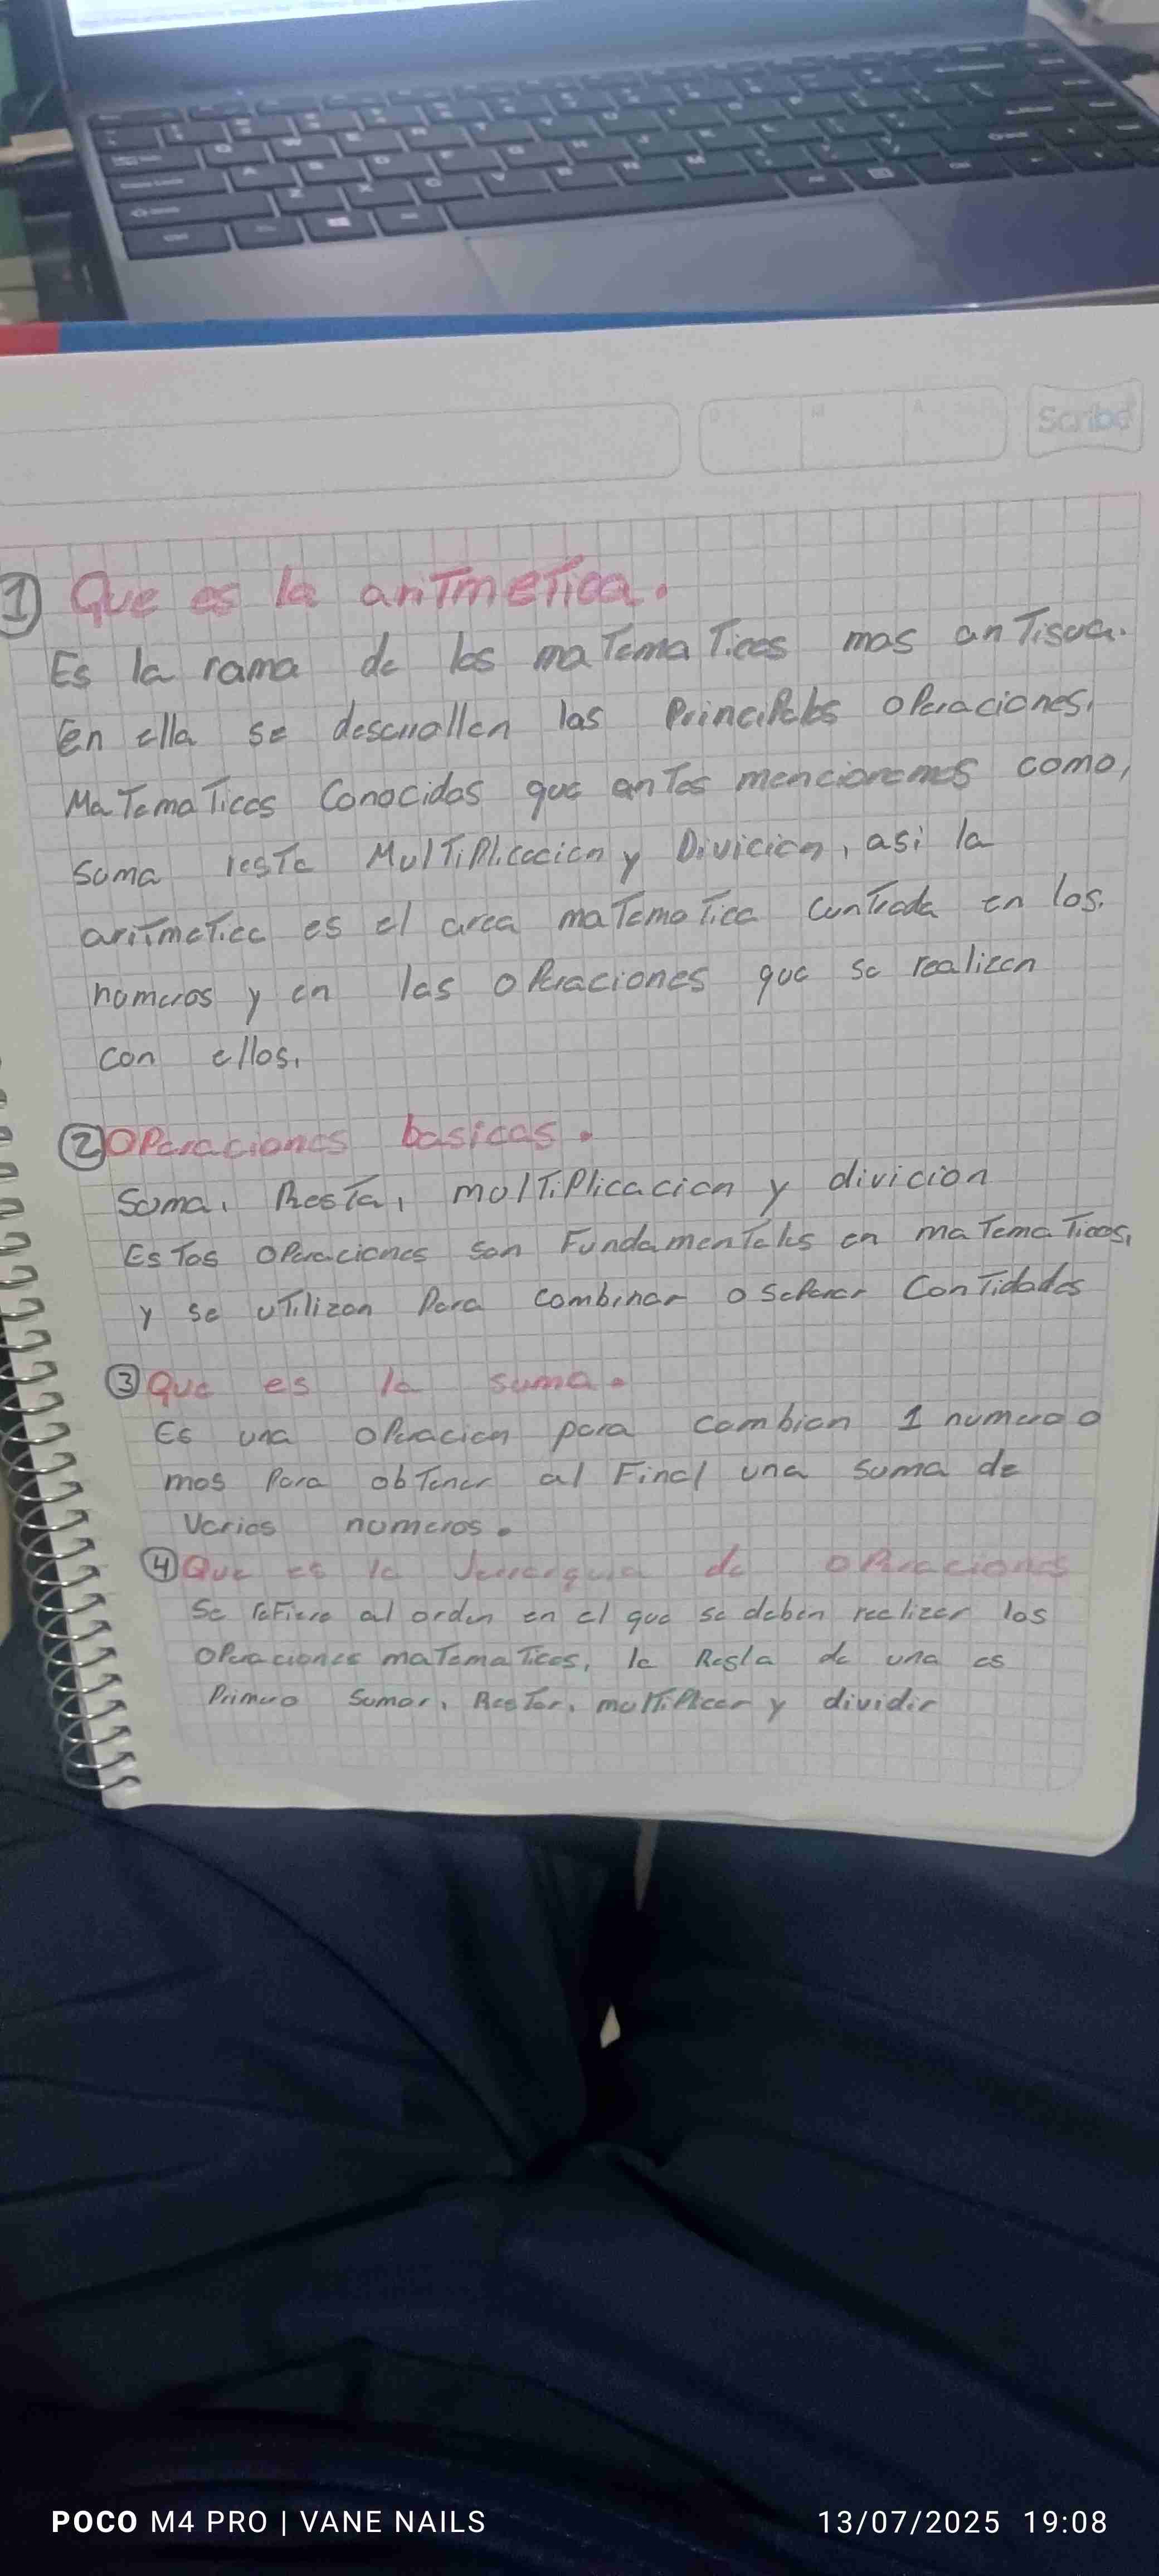 Scribe
D M A
1 Que es la aritmetica.
Es la rama de las matematicas mas antigua.
En ella se desarrollan las Principales operaciones,
Matematicas Conocidas que antes mencionemos como,
Suma resta Multiplicacion y Divicion, asi la
aritmetica es el area matematica centrada en los.
numeros y en las operaciones que se realizan
con ellos,
2 Operaciones basicas.
Suma, Resta, multiplicacion y divicion
Estas operaciones son Fundamentales en matematicas,
y se utilizan Para combinar o separar Cantidades
3 Que es la suma.
Es una operacion para combian 1 numero o
mas Para obtener al Final una suma de
Varios numeros.
4 Que es la Jerrarquia de operaciones
Se refiere al orden en el que se deben realizar las
operaciones matematicas, la Regla de una es
Primero Sumar, Restar, multiplicar y dividir
POCO M4 PRO | VANE NAILS
13/07/2025 19:08